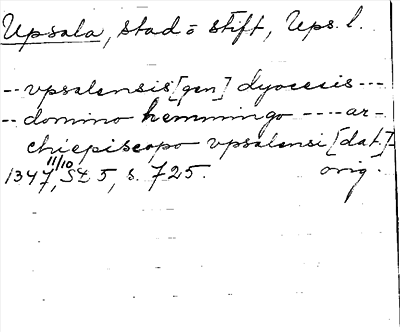 Upsala, stad o stift, Ups. l.
-- vpsalensis [gen] dyocesis ---
-- domino hemmingo ---- ar-
chiepiscopo vpsalensi [dat.]-
1347 11/10, SD 5, s. 725. orig.